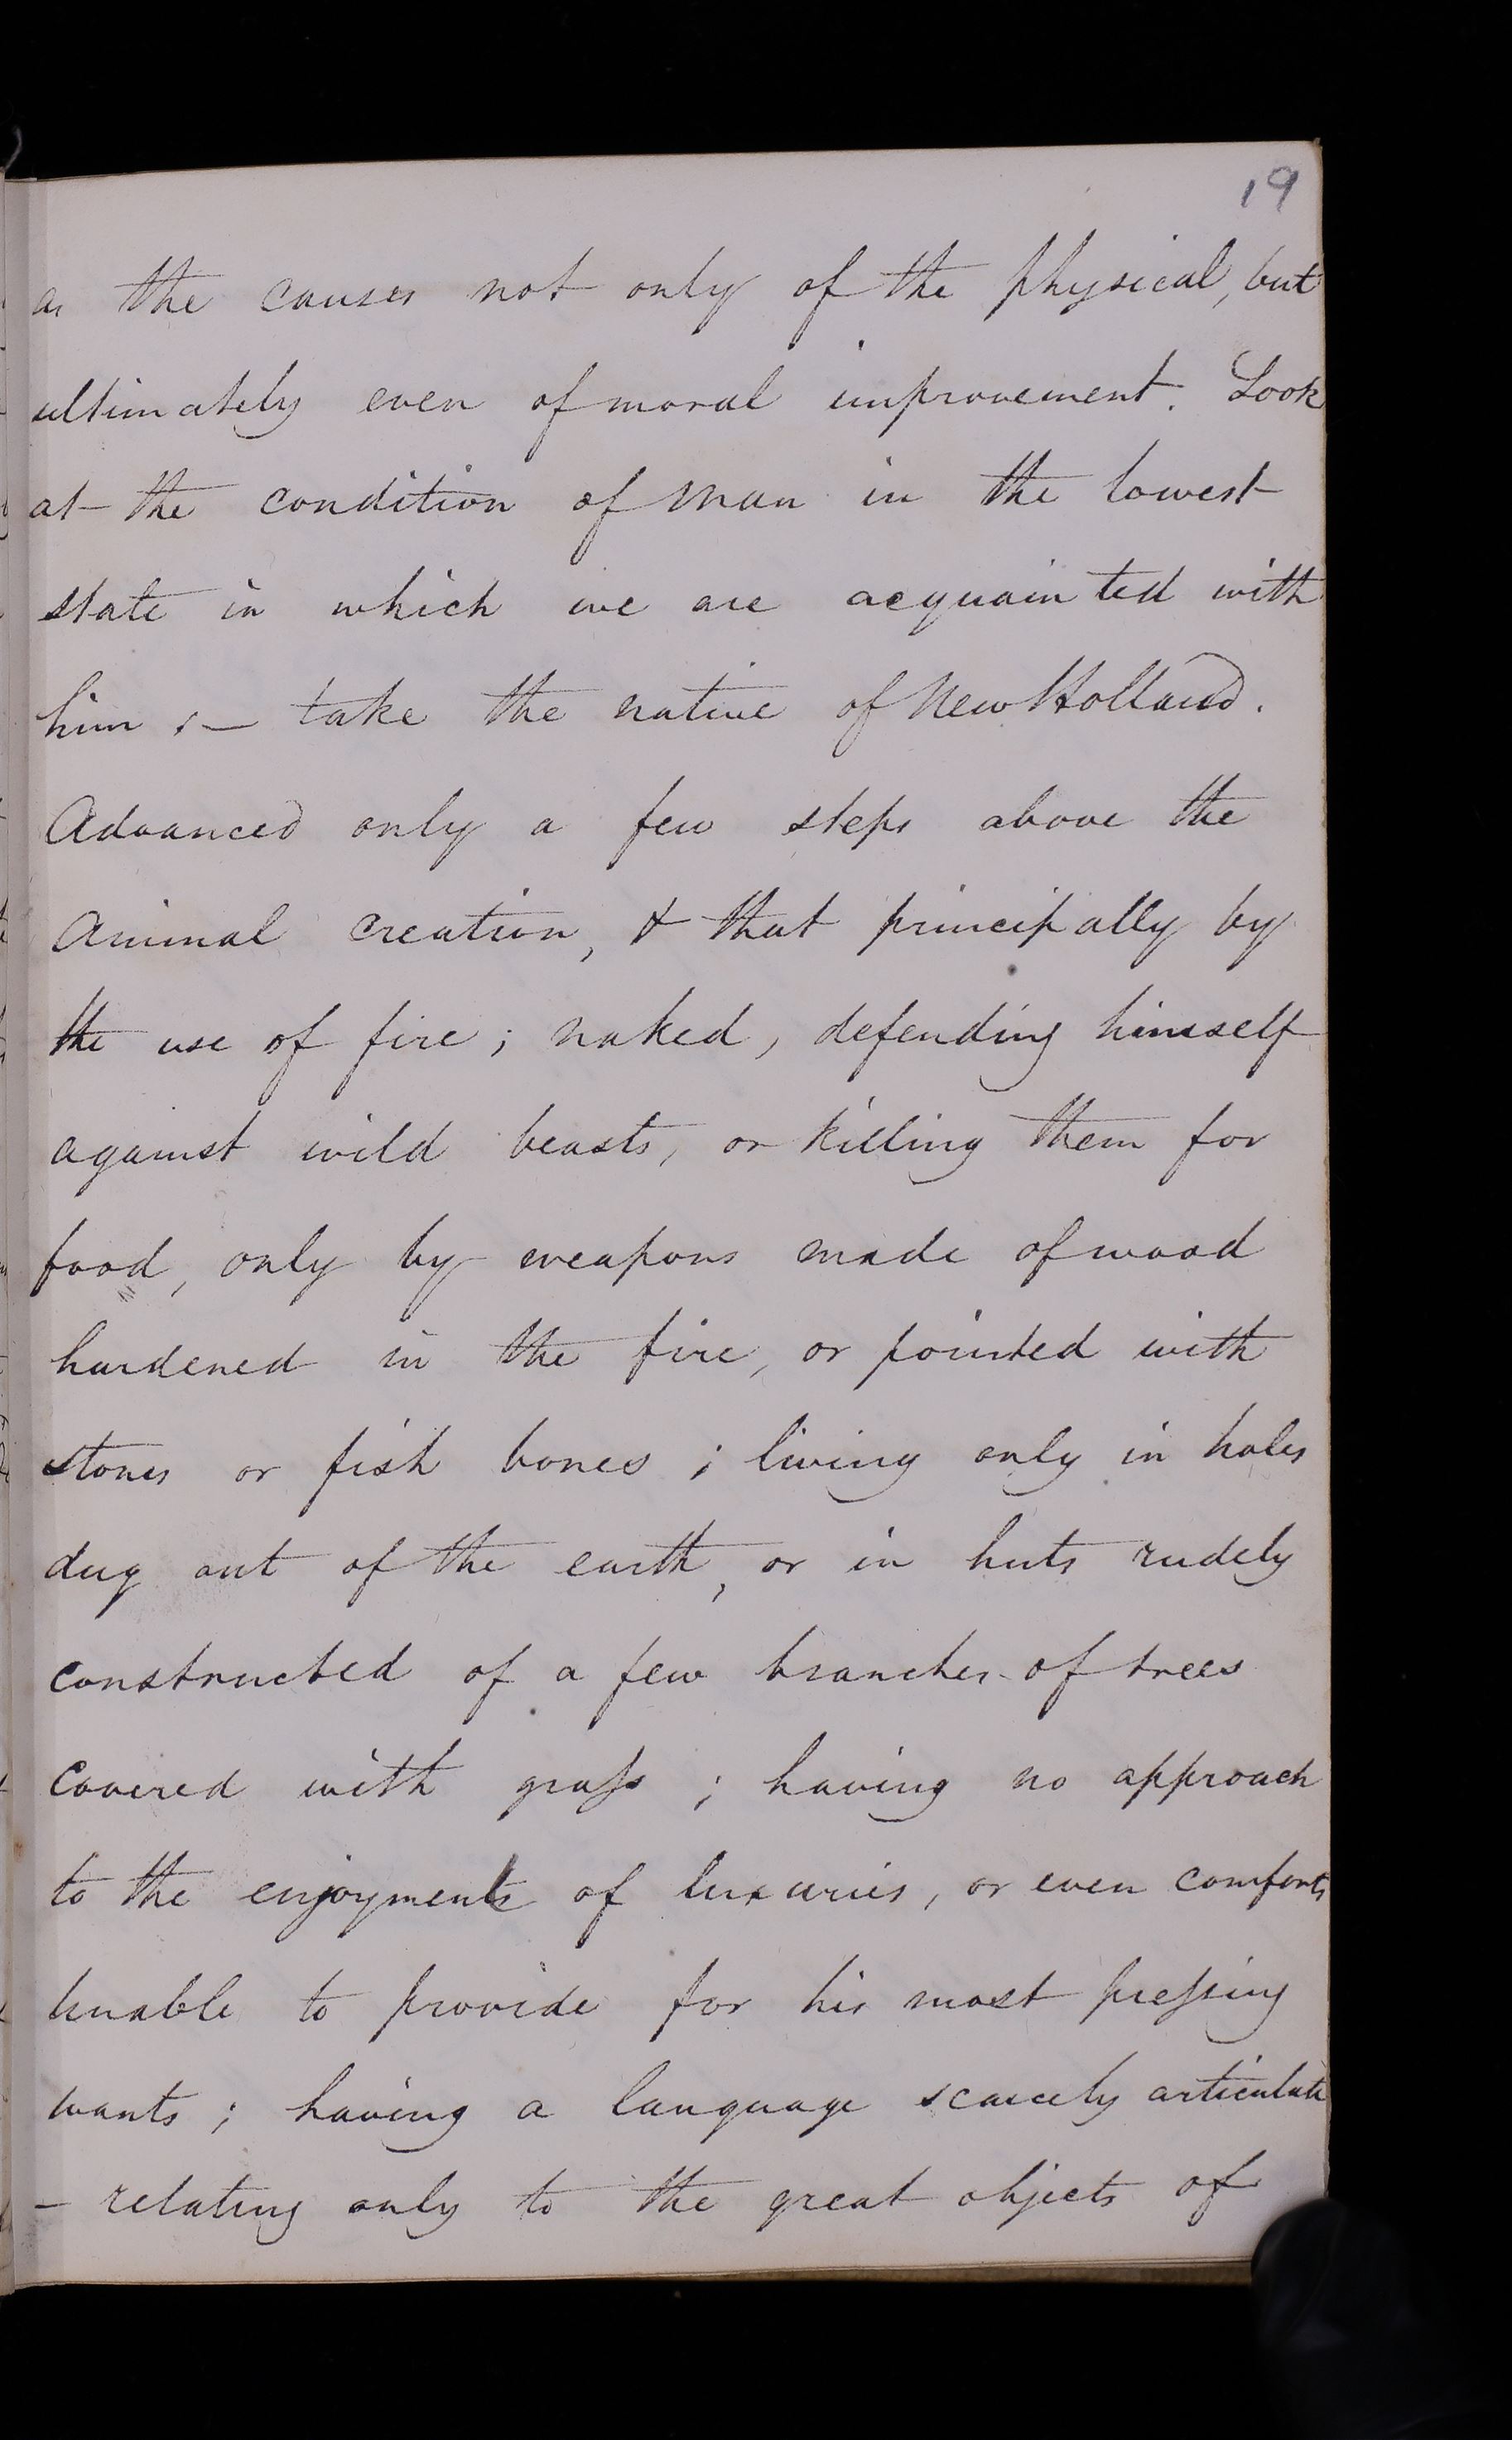 19
as the causes not only of the physical, but
ultimately even of moral improvement. Look
at the condition of man in the lowest
state in which we are acquainted with
him ;— take the native of New Holland.
Advanced only a few steps above the
Animal creation, & that principally by
the use of fire; naked, defending himself
against wild beasts, or killing them for
food, only by weapons made of wood
hardened in the fire, or pointed with
stones or fish bones ; living only in holes
dug out of the earth, or in huts rudely
constructed of a few branches of trees
covered with grass ; having no approach
to the enjoyments of luxuries, or even comforts
unable to provide for his most pressing
wants ; having a language scarcely articulate
— relating only to the great objects of